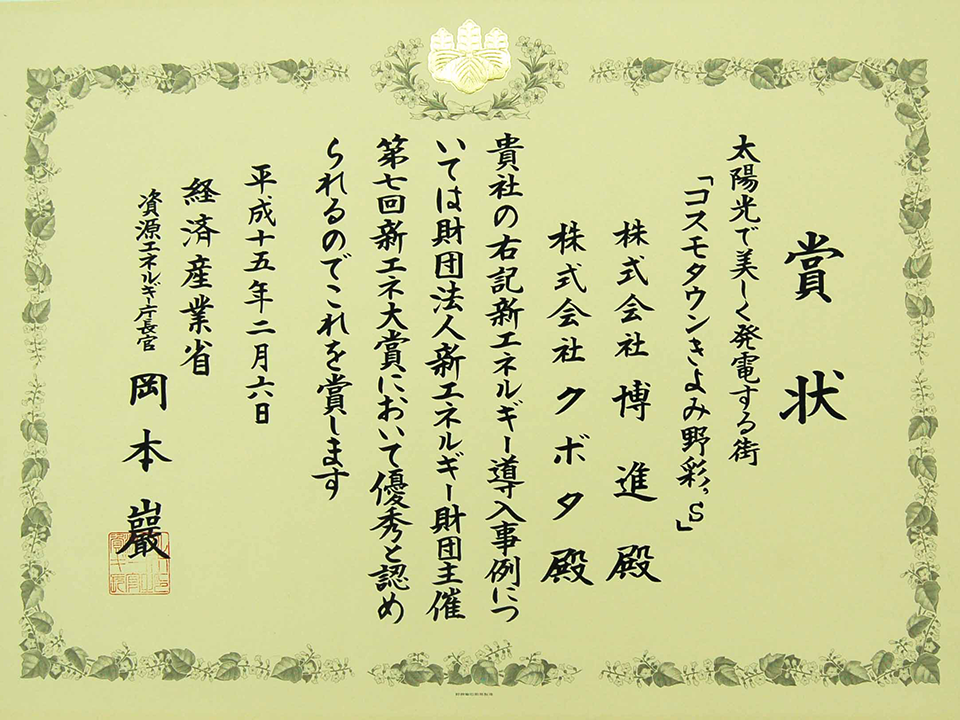 賞状
太陽光で美しく発電する街
「コスモタウンきよみ野彩's」
株式会社 博進 殿
株式会社 クボタ 殿
貴社の右記新エネルギー導入事例につ
いては財団法人新エネルギー財団主催
第七回新エネ大賞において優秀と認め
られるのでこれを賞します
平成十五年二月六日
経済産業省
資源エネルギー庁長官 岡本巖